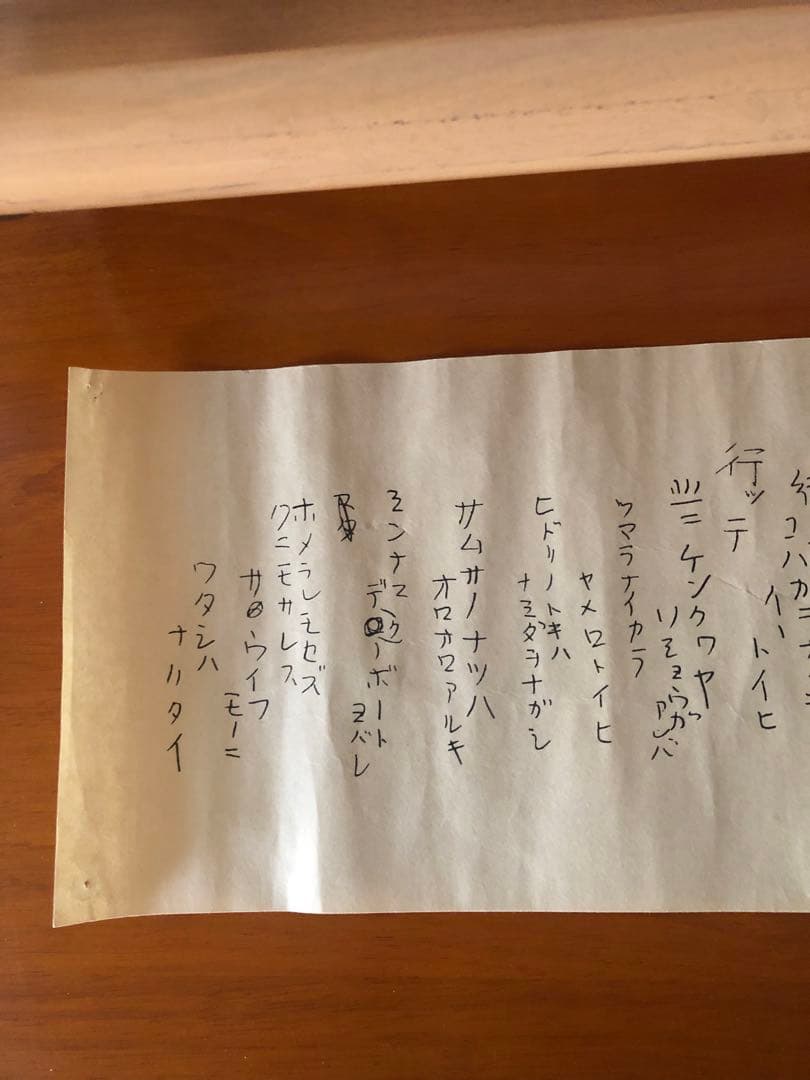 コハガラナ
イヽトイヒ
行ッテ
ニケンクワヤ
ソショウガアレバ
ツマラナイカラ
ヤメロトイヒ
ヒドリノトキハ
ナミダヲナガシ
サムサノナツハ
オロオロアルキ
ミンナニ
デクノボートヨバレ
ホメラレモセズ
クニモサレズ
サウイフ
モノニ
ワタシハ
ナリタイ